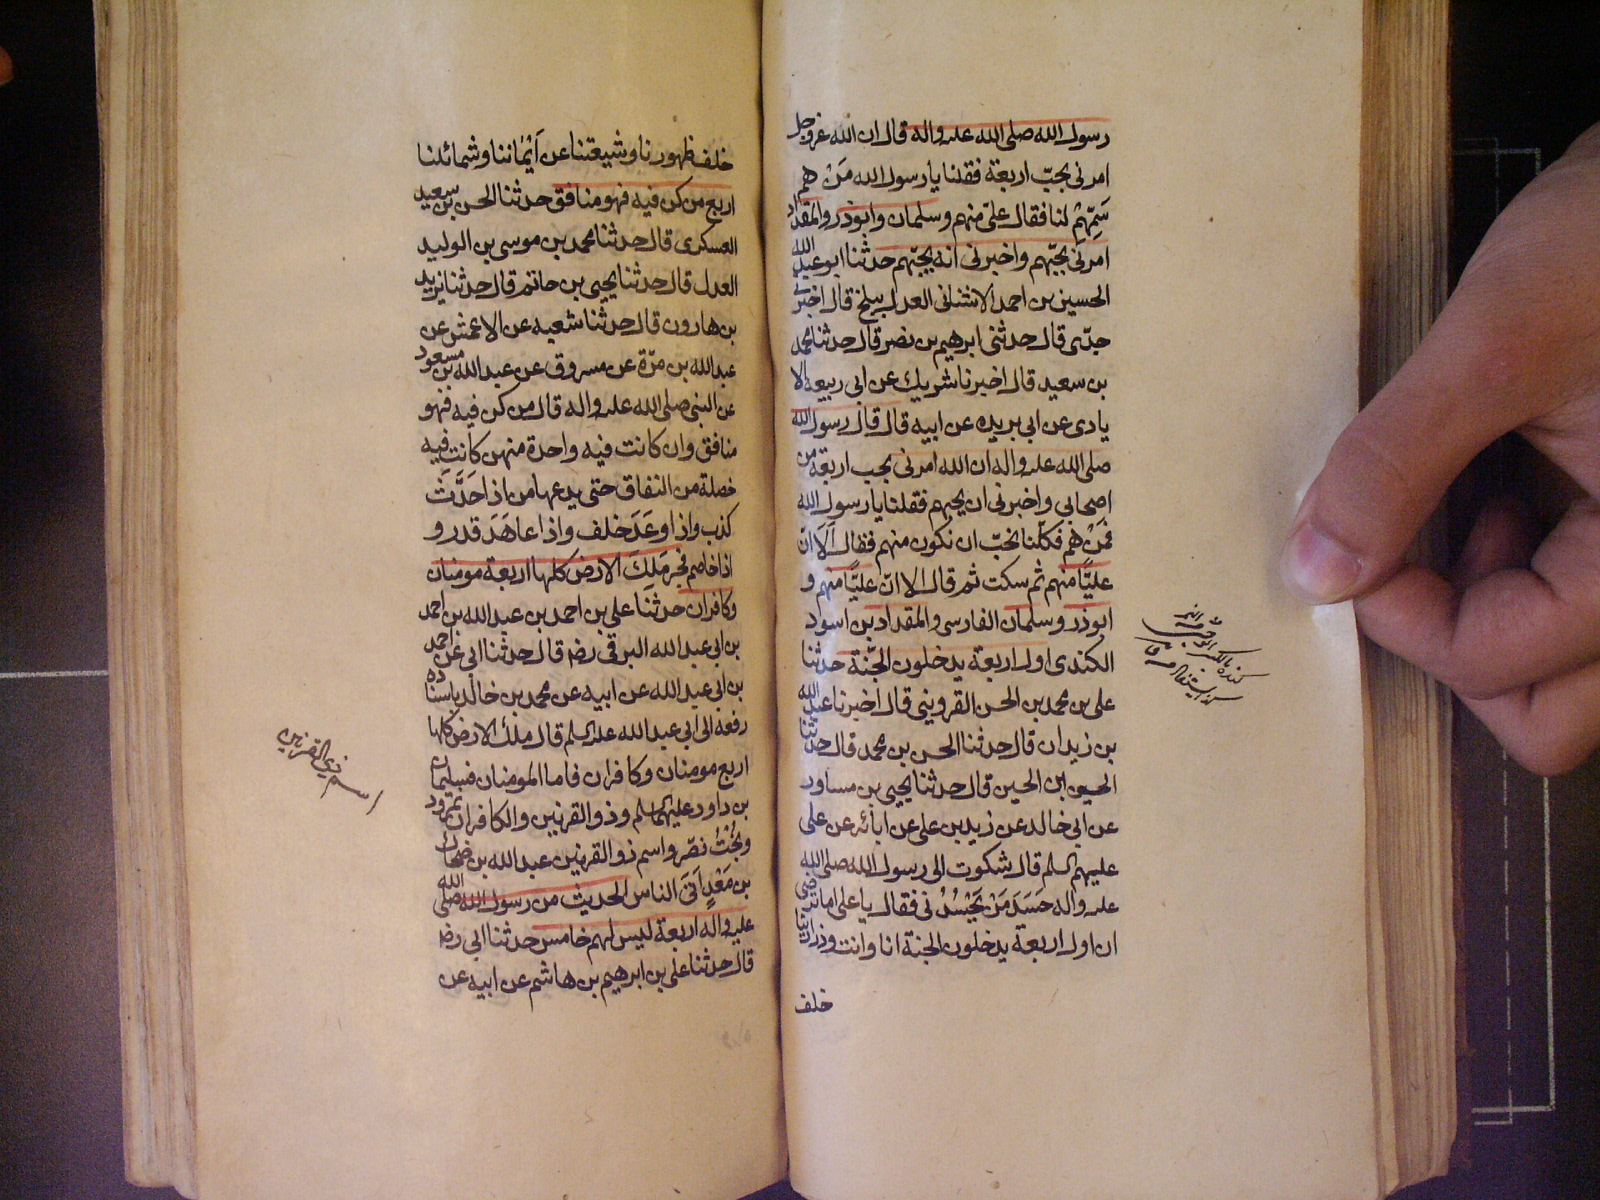 رسول الله صلى الله عليه واله قال ان الله عز وجل
امرنى بحبّ اربعة فقلنا يا رسول الله مَنْ هم
سَمِّهِمْ لنا فقال علىّ منهم وسلمان وابوذر والمقداد
امرنى بحبّهم واخبرنى انه يحبّهم حدثنا ابو عبد الله
الحسين بن احمد الاشنانى العدل ببلخ قال اخبرنى
جدّى قال حدثنى ابرهيم بن نصر قال حدثنا محمد
بن سعيد قال اخبرنا شريك عن ابى ربيعه الا
يادى عن ابى بريده عن ابيه قال قال رسول الله
صلى الله عليه واله ان الله امرنى بحب اربعة من
اصحابى واخبرنى ان يحبهم فقلنا يا رسول الله
فمَنْ هم فكلّنا نحبّ ان نكون منهم فقال اَلَا انّ
عليّاً منهم ثم سكت ثم قال الا انّ عليّاً منهم و
ابوذر وسلمان الفارسى والمقداد بن اسود
الكندى اول اربعة يدخلون الجنّة حدثنا
على بن محمد بن الحسن القزوينى قال اخبرنا عبد الله
بن زيدان قال حدثنا الحسن بن محمد قال حدثنا
الحسن ابن الحسين قال حدثنا يحيى بن مساور
عن ابى خالد عن زيد بن على عن ابائه عن على
عليهم السلم قال شكوت الى رسول الله صلى الله
عليه واله حَسَدَ مَنْ يَحْسُدُنى فقال يا على اما ترضى
ان اول اربعة يدخلون الجنة انا وانت وذرارينا
خلف
خلف ظهورنا وشيعتنا عن اَيْمٰاننا وشمائلنا
اربع من كن فيه فهو منافق حدثنا الحسن بن سعيد
العسكرى قال حدثنا محمد بن موسى بن الوليد
العدل قال حدثنا يحيى بن حاتم قال حدثنا يزيد
بن هارون قال حدثنا شعبه عن الاعمش عن
عبد الله بن مرّة عن مسروق عن عبد الله بن مسعود
عن النبى صلى الله عليه واله قال من كن فيه فهو
منافق وان كانت فيه واحدة منهن كانت فيه
خصلة من النفاق حتى يدعها من اذا حَدَّثَ
كذب واذا وَعَدَ خلف واذا عاهَدَ قدر و
اذا خاصم فجر مَلَكَ الارض كلها اربعة مومنان
وكافران حدثنا على بن احمد بن عبد الله بن احمد
بن ابى عبد الله البرقى رضه قال حدثنا ابى عن احمد
بن ابى عبد الله عن ابيه عن محمد بن خالد باسناده
رفعه الى ابى عبد الله عليه السلم قال ملك الارض كلها
اربع مومنان وكافران فاما المومنان فسليمان
بن داود عليهما السلم وذو القرنين والكافران نمرود
وبُخْتُ نصّر واسم ذو القرنين عبد الله بن ضحاك
بن مَعْدٍ اَتَى الناس الحديث من رسول الله صلى الله
عليه واله اربعة ليس لهم خامس حدثنا ابى رضه
قال حدثنا على بن ابرهيم بن هاشم عن ابيه عن
اسم ذى القرنين